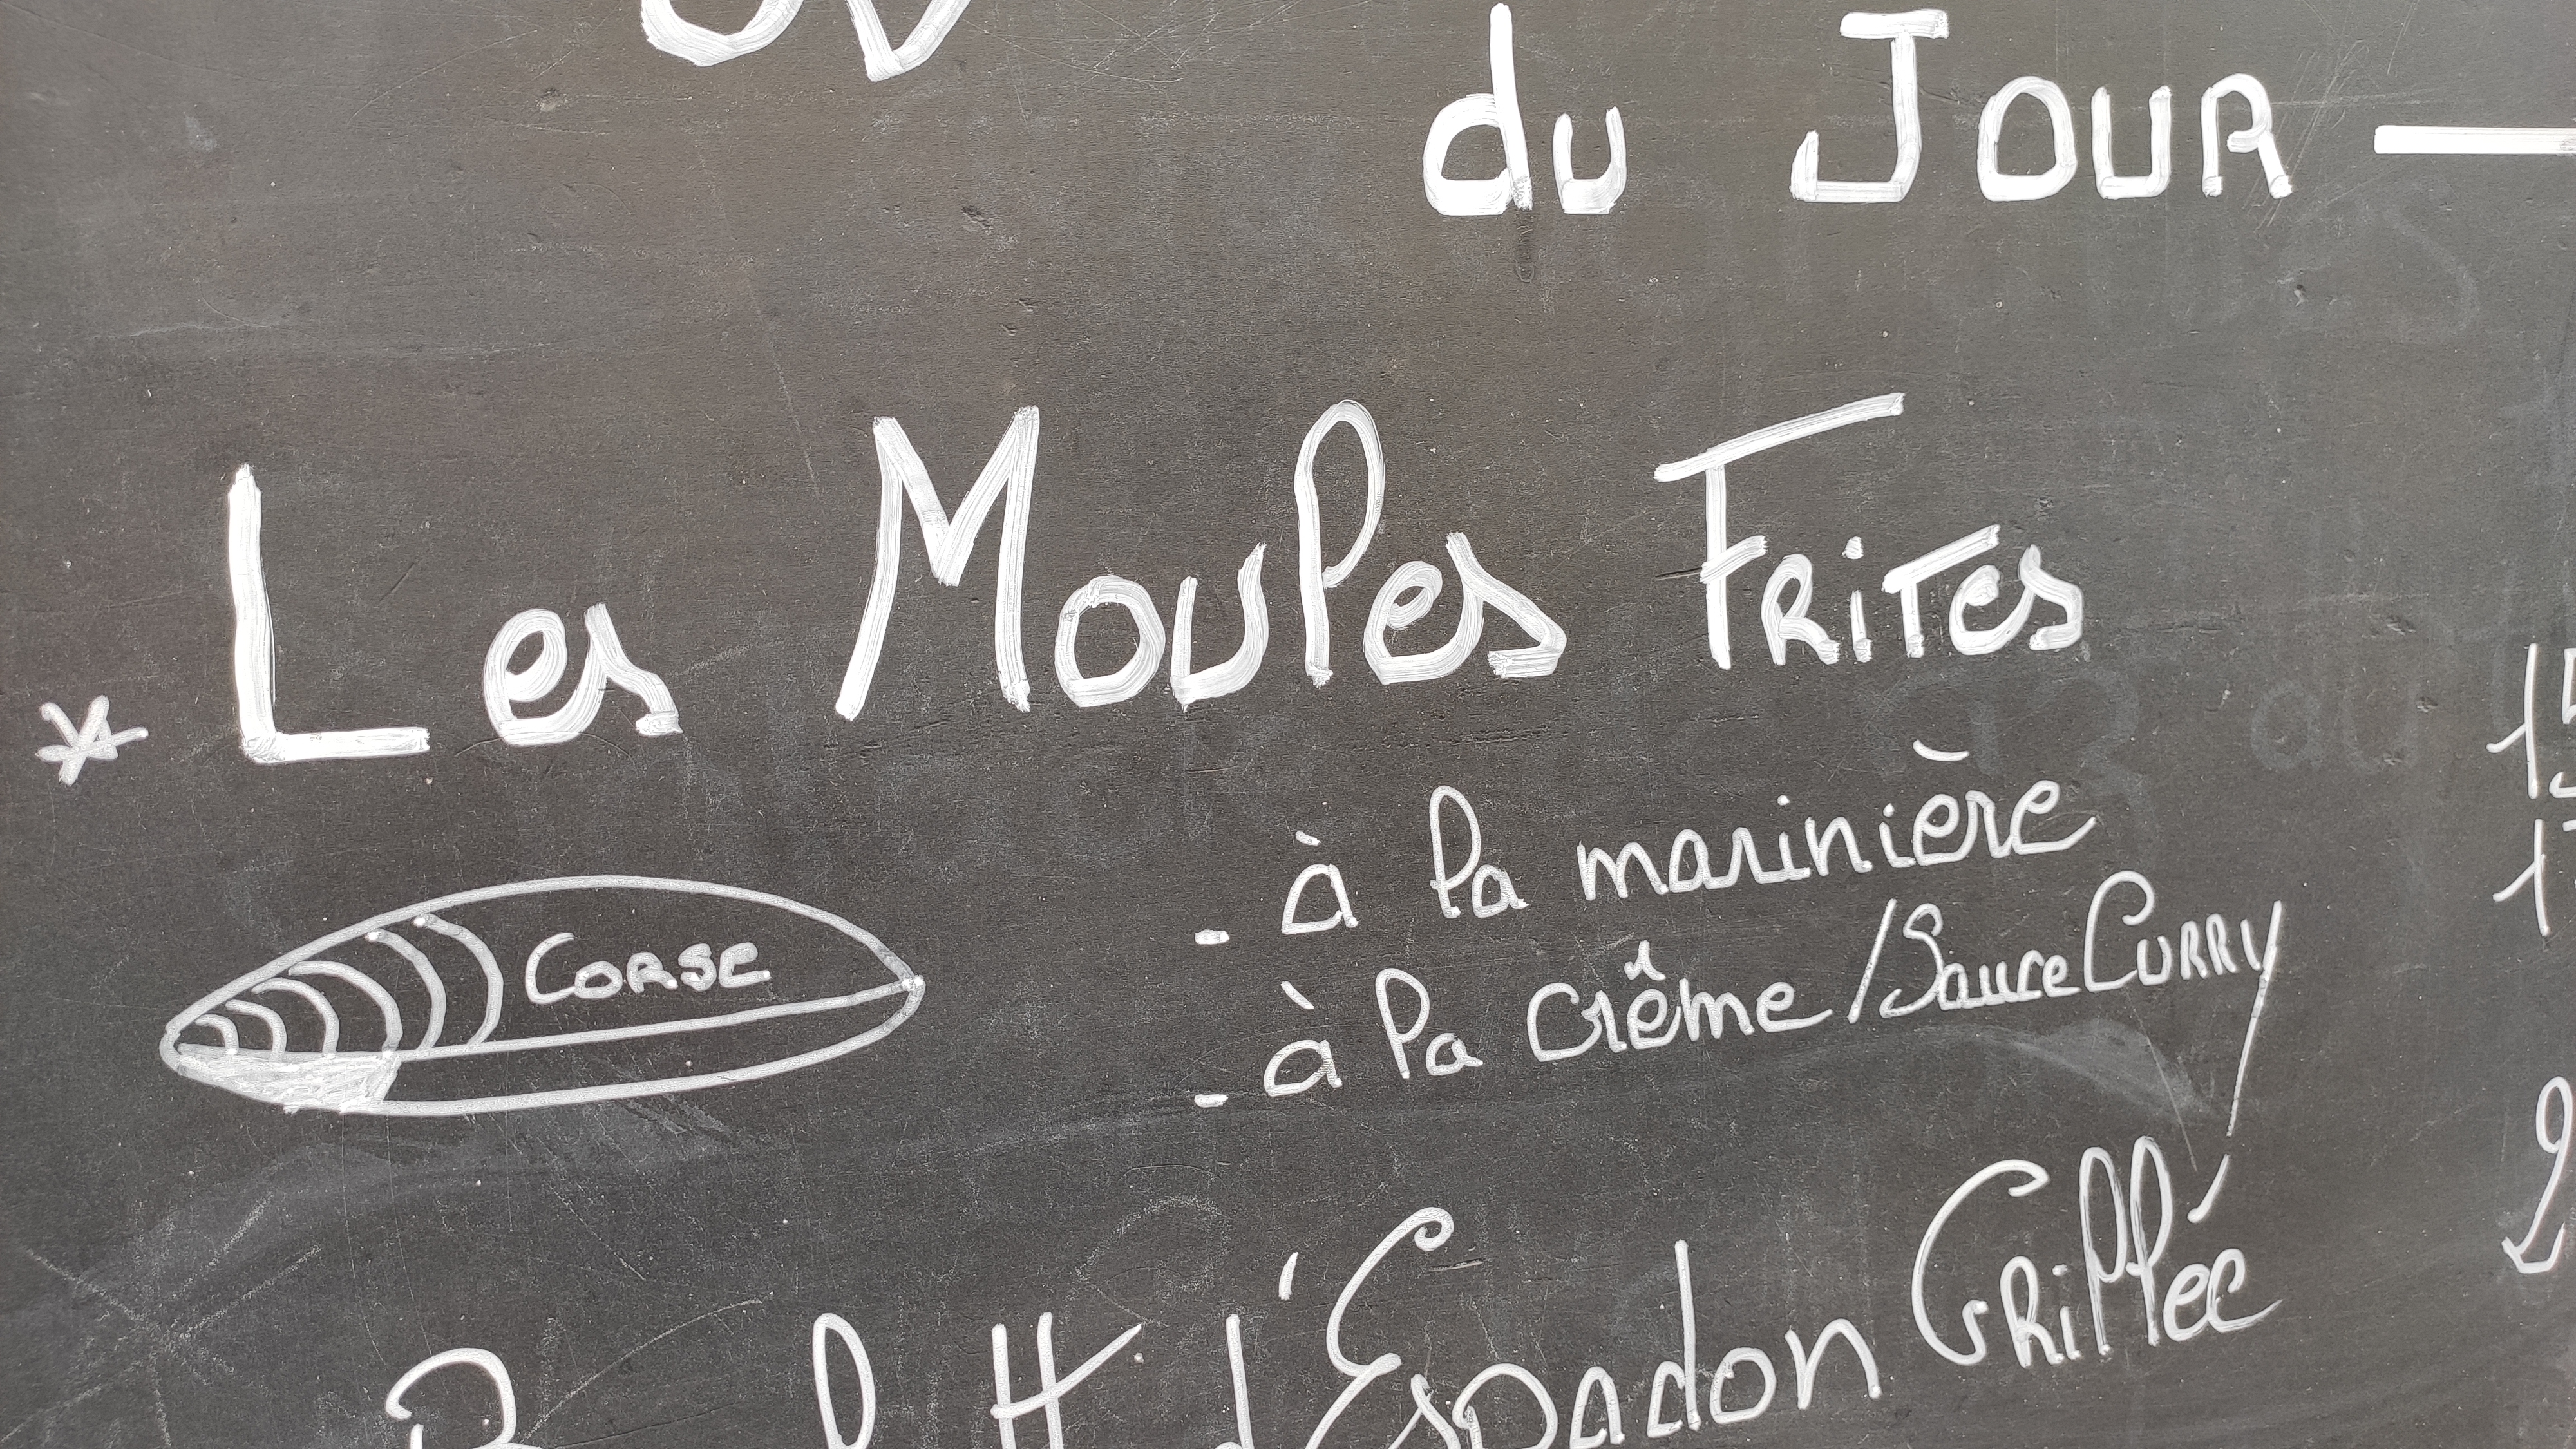 du Jour
* Les Moules Frites
- à la marinière
Corse
- à la Crême / Sauce Curry
d'Espadon Grillée